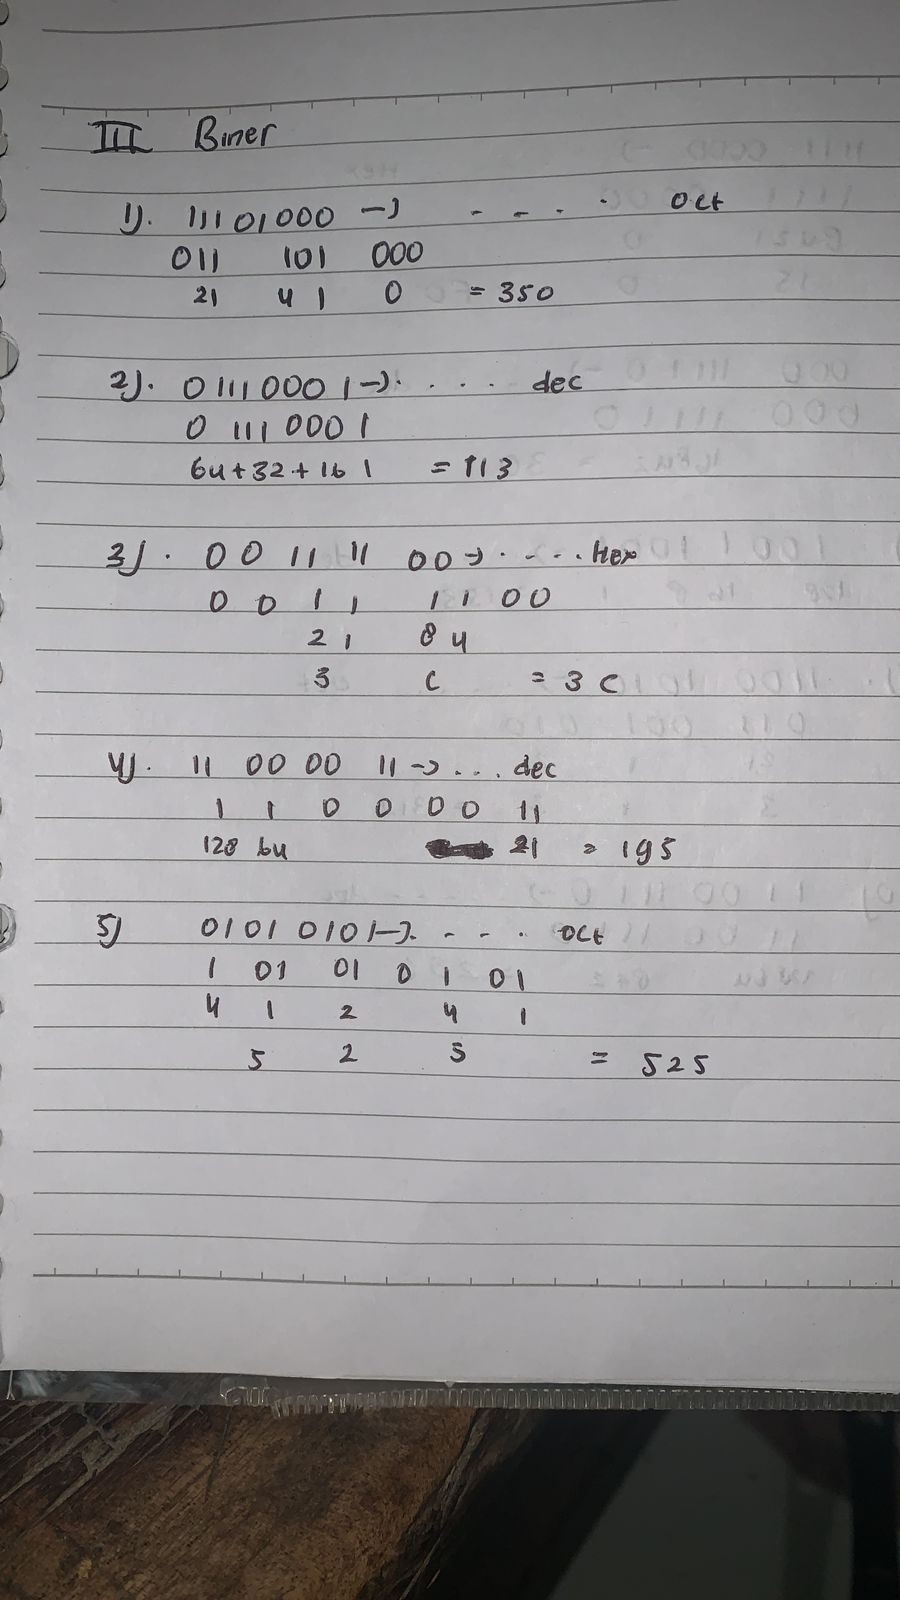 III Biner
1). 11101000 -> - - . . Oct
011 101 000
21 41 0 = 350
2). 01110001 ->. . . . dec
0 111 0001
64+32+16 1 = 113
3). 00 11 11 00 -> . - - . . Hex
0 0 1 1 1 1 0 0
21 84
3 C = 3C
4). 11 00 00 11 -> . . . dec
1 1 0 0 0 0 11
128 64 21 = 195
5) 0101 0101 ->. - - . Oct
1 01 01 0 1 01
4 1 2 4 1
5 2 5 = 525